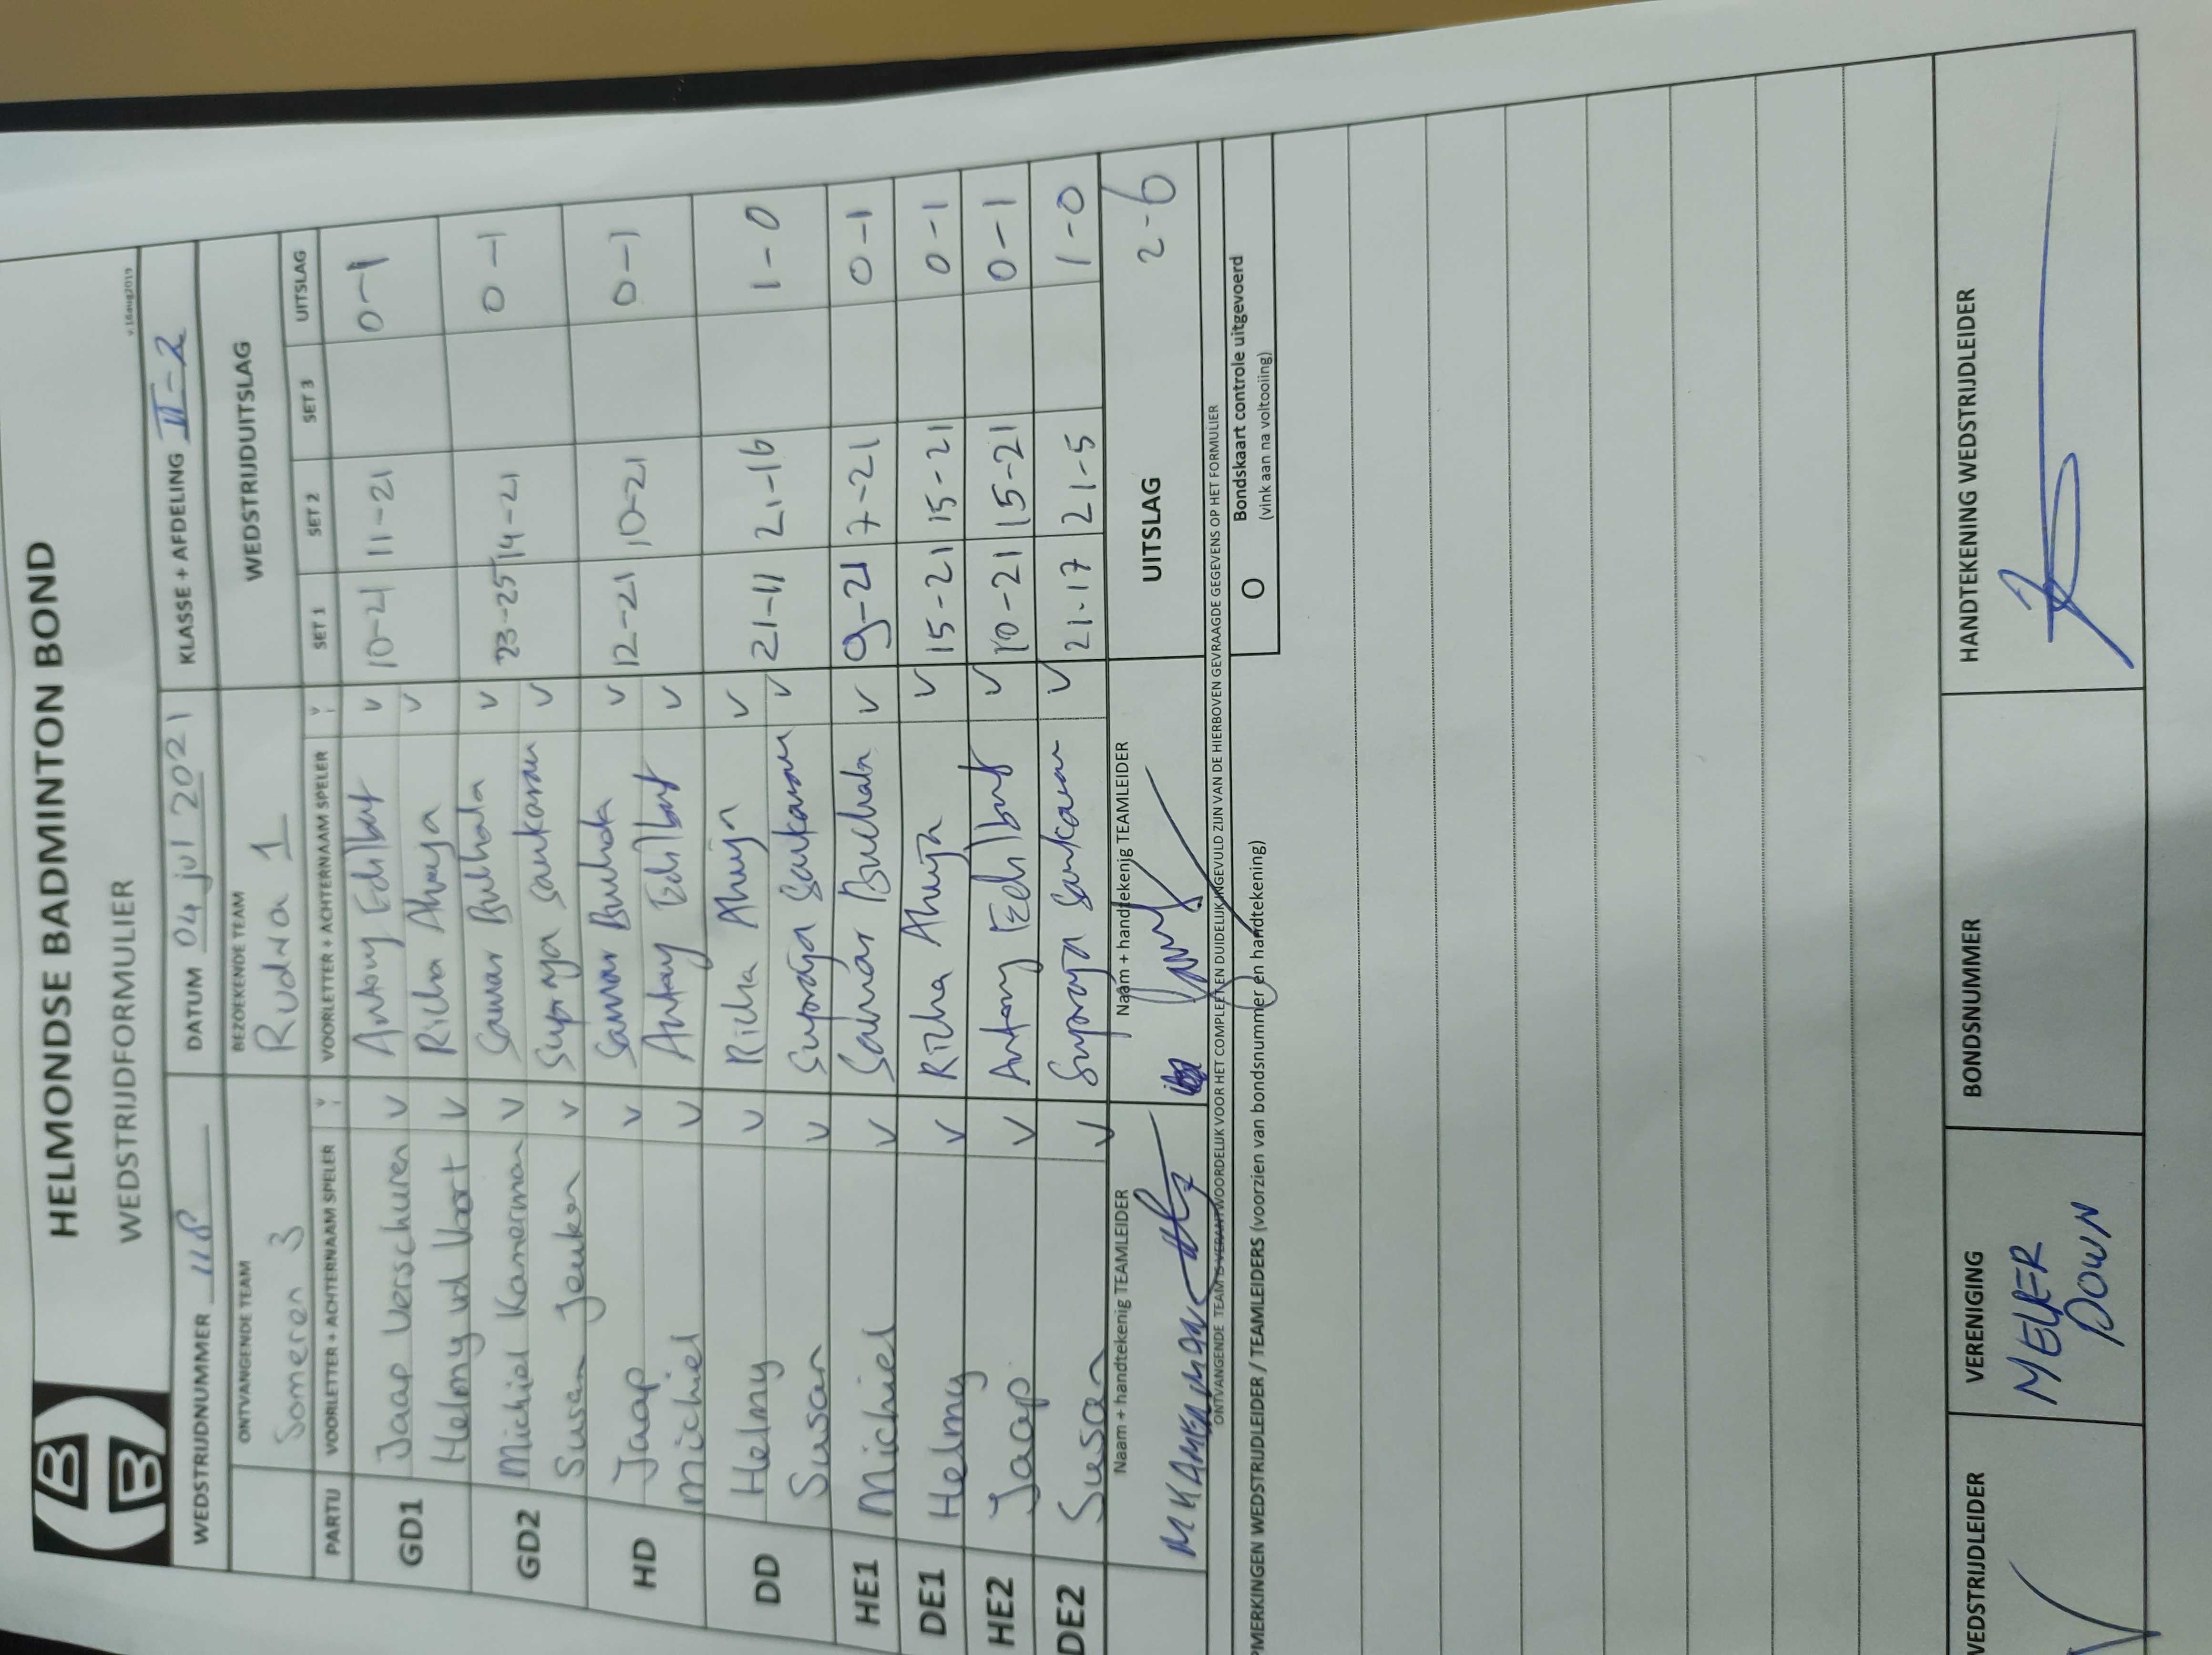 B
B
HELMONDSE BADMINTON BOND
WEDSTRIJDFORMULIER
v.16aug2019
WEDSTRIJDNUMMER 118 DATUM 04 jul 2021 KLASSE + AFDELING II-2
ONTVANGENDE TEAM BEZOEKENDE TEAM WEDSTRIJDUITSLAG
Someren 3 Rudna 1
PARTIJ VOORLETTER + ACHTERNAAM SPELER VOORLETTER + ACHTERNAAM SPELER SET 1 SET 2 SET 3 UITSLAG
GD1 Jaap Verschuren v Antony Edilbert v 10-21 11-21 0-1
Helmy vd Voort v Richa Ahuja v
GD2 Michiel Kamerman v Samar v 23-25 14-21 0-1
Susan v Supraya Sankaran v
HD Jaap v Samar v 12-21 10-21 0-1
Michiel v Antony Edilbert v
DD Helmy v Richa Ahuja v 21-11 21-16 1-0
Susan v Supraya Sankaran v
HE1 Michiel v Samar v 9-21 7-21 0-1
DE1 Helmy v Richa Ahuja v 15-21 15-21 0-1
HE2 Jaap v Antony Edilbert v 10-21 15-21 0-1
DE2 Susan v Supraya Sankaran v 21-17 21-5 1-0
Naam + handtekenig TEAMLEIDER Naam + handtekenig TEAMLEIDER UITSLAG 2-6
M KAMERMAN
ONTVANGENDE TEAM IS VERANTWOORDELIJK VOOR HET COMPLEET EN DUIDELIJK INGEVULD ZIJN VAN DE HIERBOVEN GEVRAAGDE GEGEVENS OP HET FORMULIER
PMERKINGEN WEDSTRIJDLEIDER / TEAMLEIDERS (voorzien van bondsnummer en handtekening)
O Bondskaart controle uitgevoerd
(vink aan na voltooiing)
VEDSTRIJDLEIDER VERENIGING BONDSNUMMER HANDTEKENING WEDSTRIJDLEIDER
DOWN